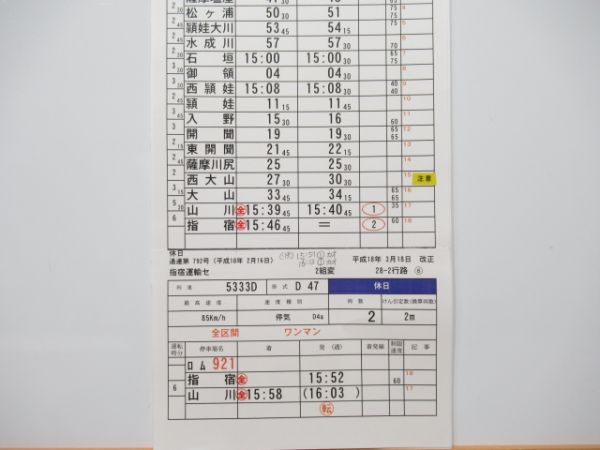 松ヶ浦 50 30 51 75
頴娃大川 53 45 54 15 75
水成川 57 57 30 70
石垣 15:00 15:00 30 65 75
御領 04 04 30
西頴娃 15:08 15:08 30 40 40
頴娃 11 15 11 45
入野 15 30 16 60
開聞 19 19 30 65 65
東開聞 21 45 22 15
薩摩川尻 25 25 30
西大山 27 30 30 30 注意
大山 33 45 34 15 65 65
山川 全 15:39 45 15:40 45 1 35 17
指宿 全 15:46 45 = 2 60 18
休日
通運第 792号 (平成18年 2月16日) 平成18年 3月18日 改正
指宿運輸セ 2組変 28-2行路
列車 5333D 形式 D 47 休日
最高速度 速度種別 両数 けん引定数(換算両数)
85Km/h 停気 D4a 2 2m
全区間 ワンマン
運転時分 停車場名 着 発(通) 着発線 制限速度 記事
ロム 921
指宿 全 15:52 60 18
6 山川 全 15:58 (16:03) 17
転